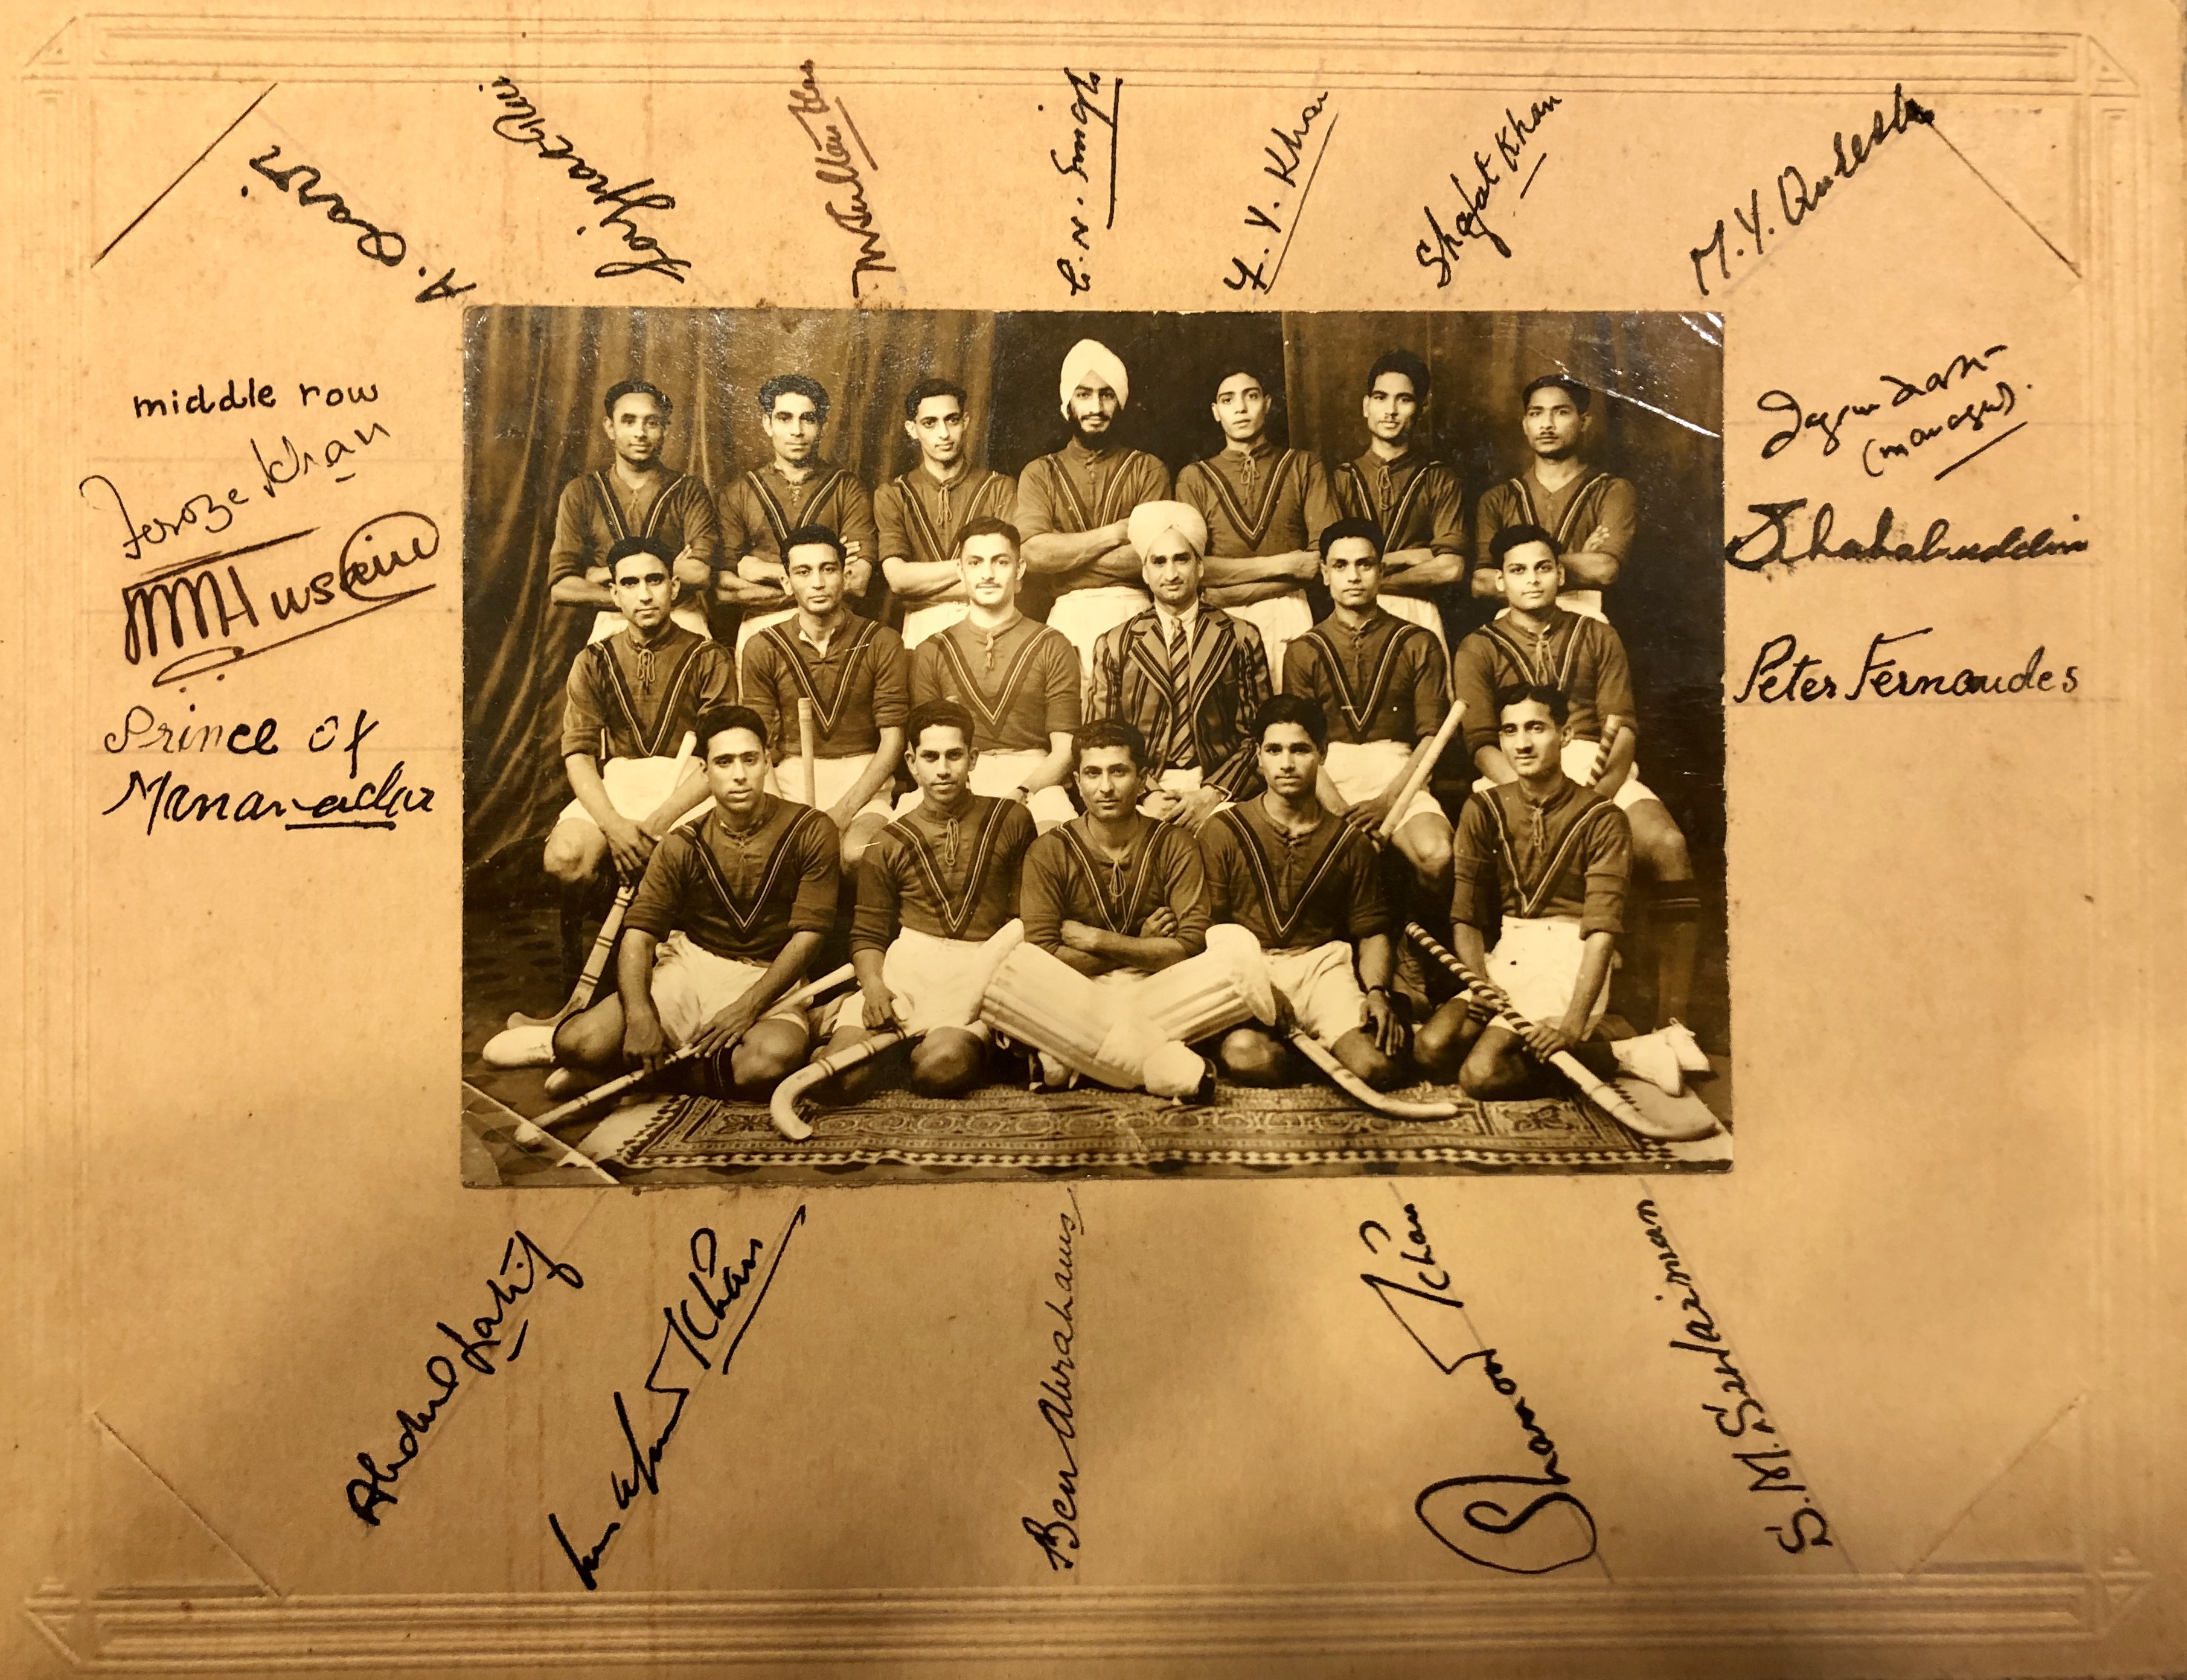 A. Qavi
M Sultan Khan
G. N. Singh
Y. Y. Khan
Shafat Khan
M. Y.
middle row
Feroze Khan
MM Hussein
Prince of
Manavadar
(manager).
Shahabuddin
Peter Fernandes
Abdul Latif
Khan
Ben Abrahams
Khan
S. M. Sulaiman